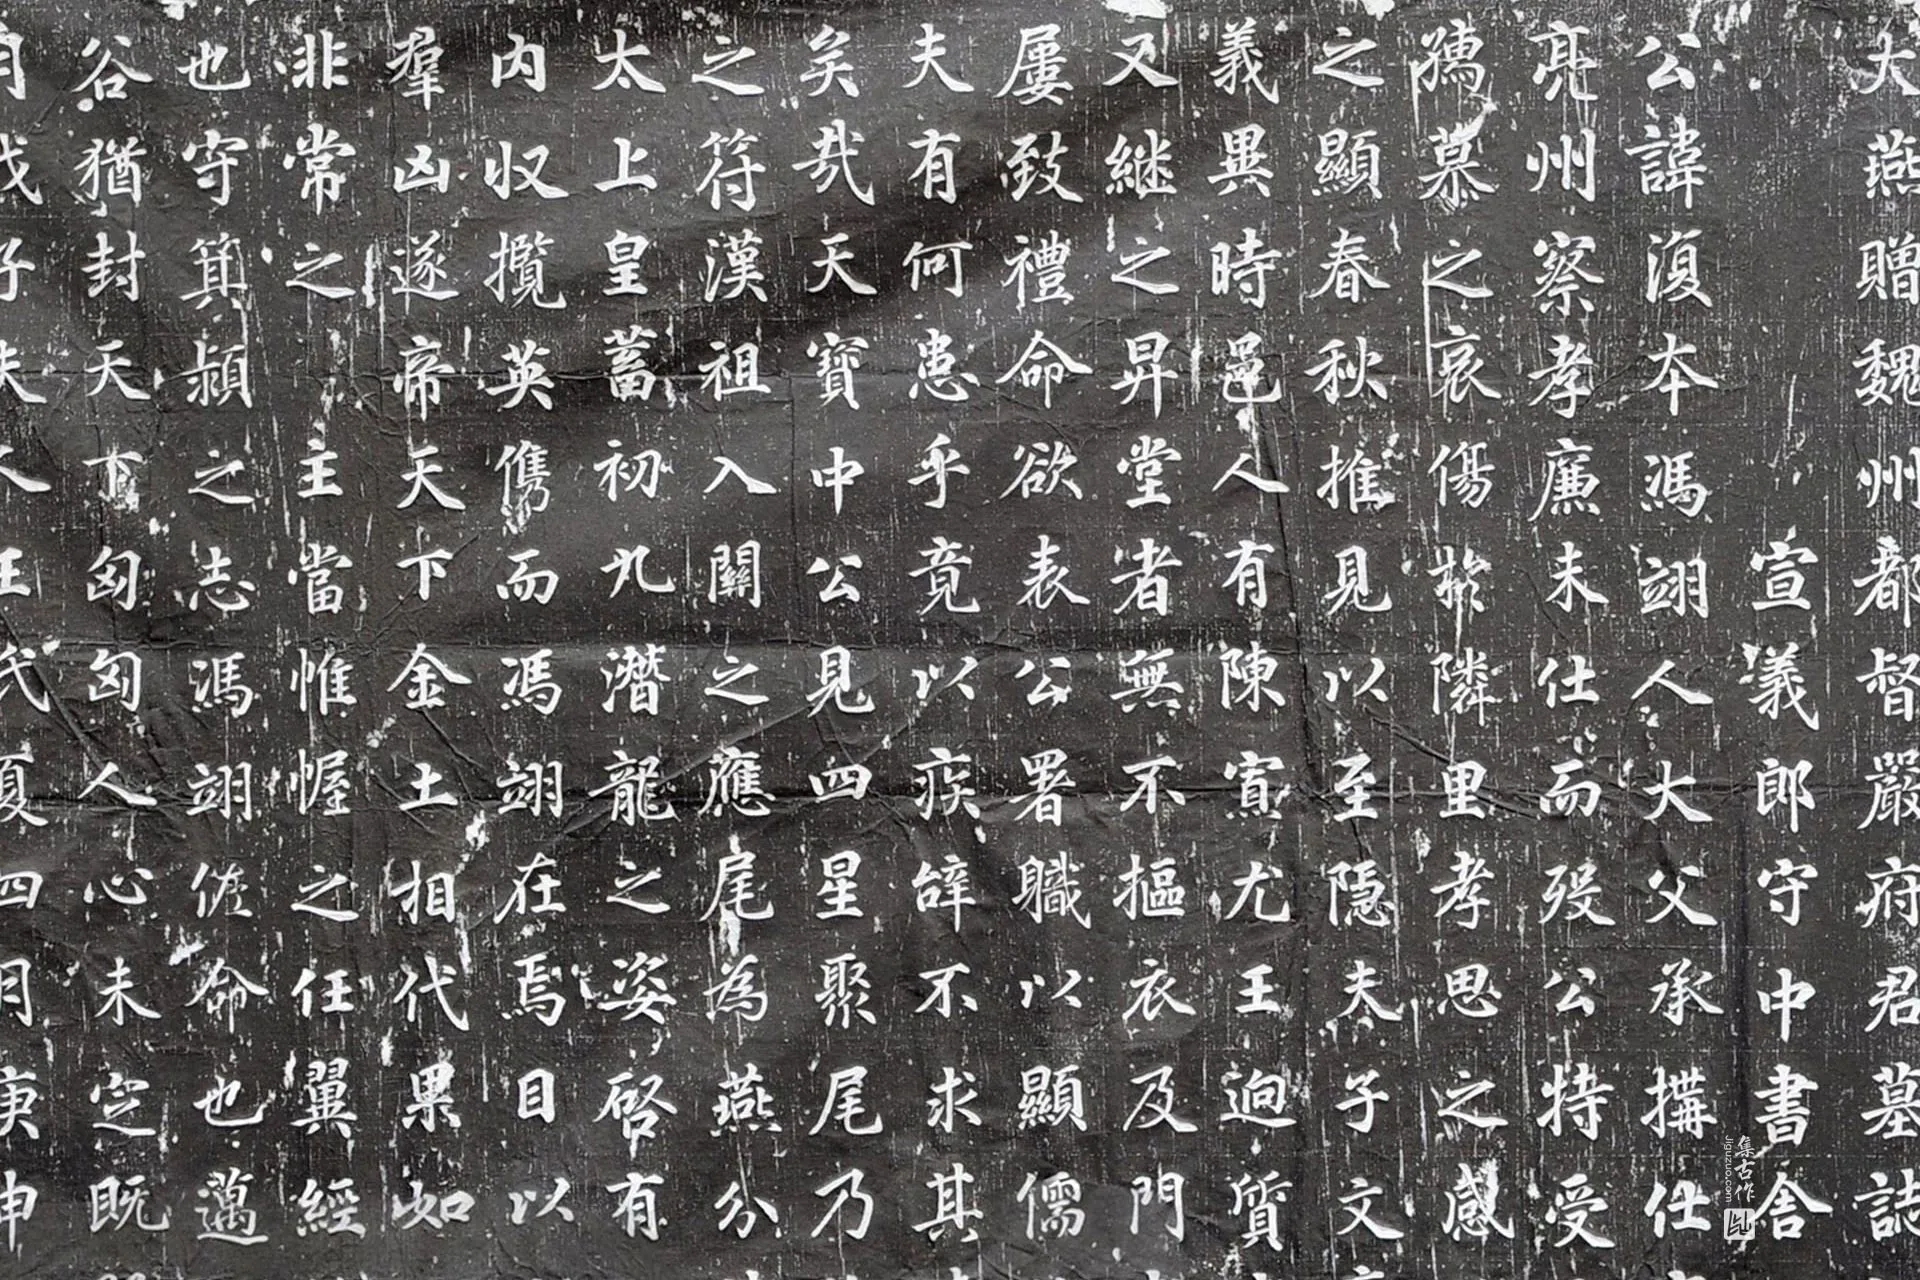 大燕贈魏州都督嚴府君墓誌
宣義郎守中書舍
公諱復本馮翊人大父承搆仕
亮州察孝廉未仕而歿公特受
孺慕之哀傷於隣里孝思之感
之顯春秋推見以至隱夫子文
義異時邑人有陳寊尤王逈質
又継之昇堂者無不摳衣及門
屢致禮命欲表公署職以顯儒
夫有何患乎竟以疾辞不求其
矣哉天寶中公見四星聚尾乃
之符漢祖入關之應尾為燕分
太上皇蓄初九潛龍之姿啓有
内収攬英儁而馮翊在焉目以
羣凶遂帝天下金土相代果如
非常之主當惟幄之任翼經
也守箕潁之志馮翊佐命也薖
谷猶封天下匈匈人心未定既
月戊子夫人王氏
四月庚申
集古作
Jiguzuo.com